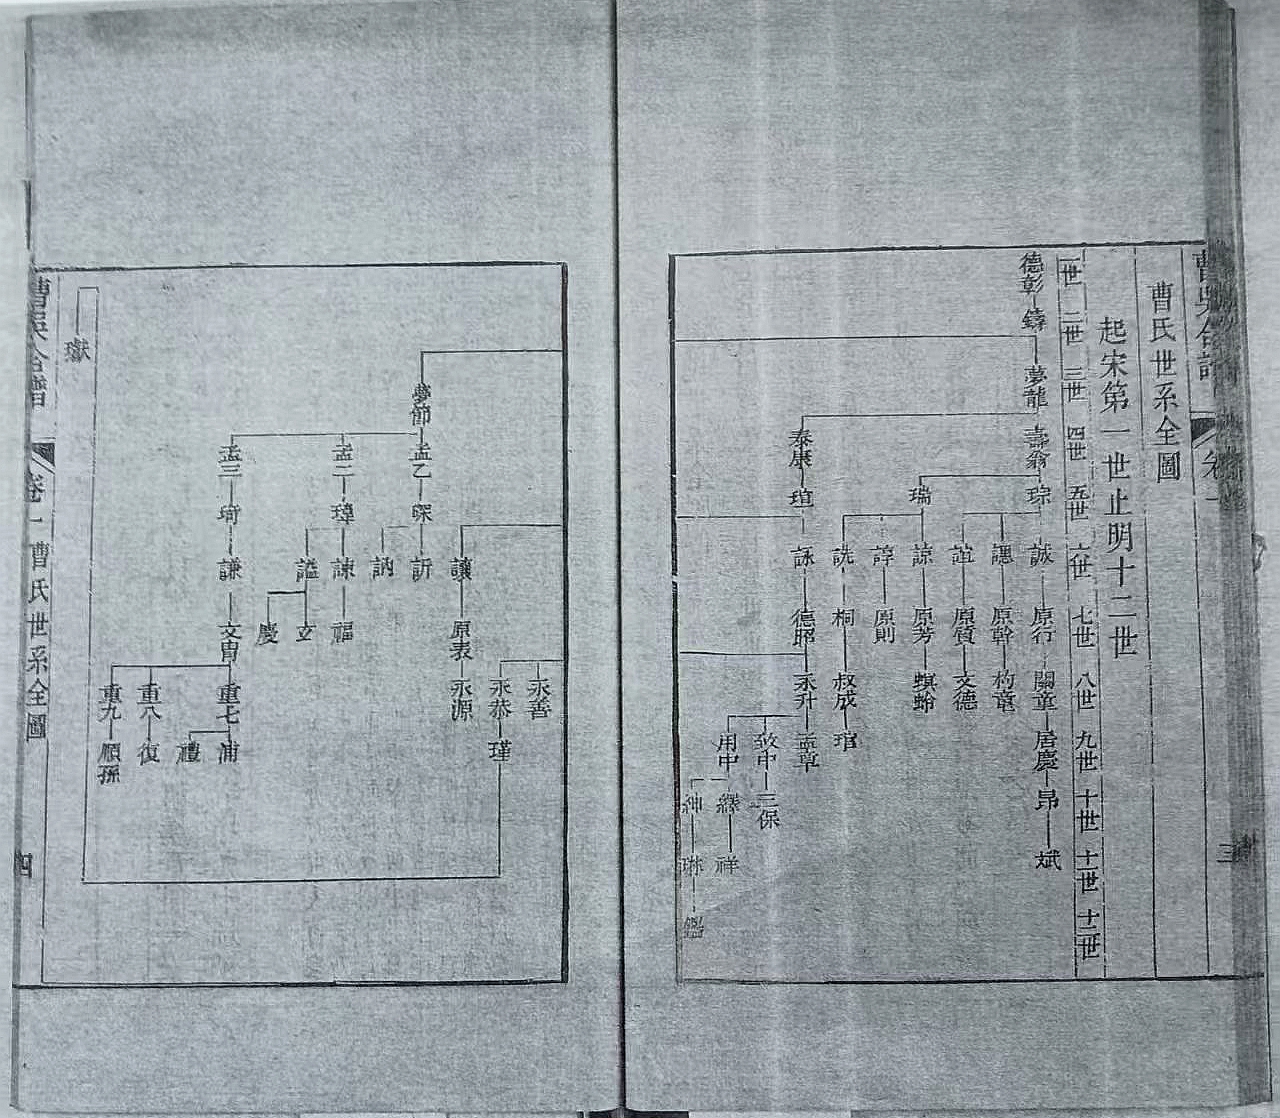 曹吳合譜
卷一
三
曹氏世系全圖
起宋第一世止明十二世
一世 二世 三世 四世 五世 六世 七世 八世 九世 十世 十一世 十二世
德彰 鑄 夢龍 壽翁 琮 誠 原行 關童 居慶 昂 斌
原幹 杓童
誼 原質 文德
瑞 諒 原芳 螟蛉
諄 原則
詵 桐 叔成 琯
泰康 瑄 詠 德昭 永升 孟章
致中 三保
用中 繹 祥
紳 琳 鑑
永善
永恭 瑾
讓 原表 永源
夢節 孟乙 琛 訢
訥
孟二 瑋 諫 福
謚 立
慶
孟三 琦 謙 文胄 重七 浦
禮
重八 復
重九 順孫
璥
曹吳合譜
卷一 曹氏世系全圖
四